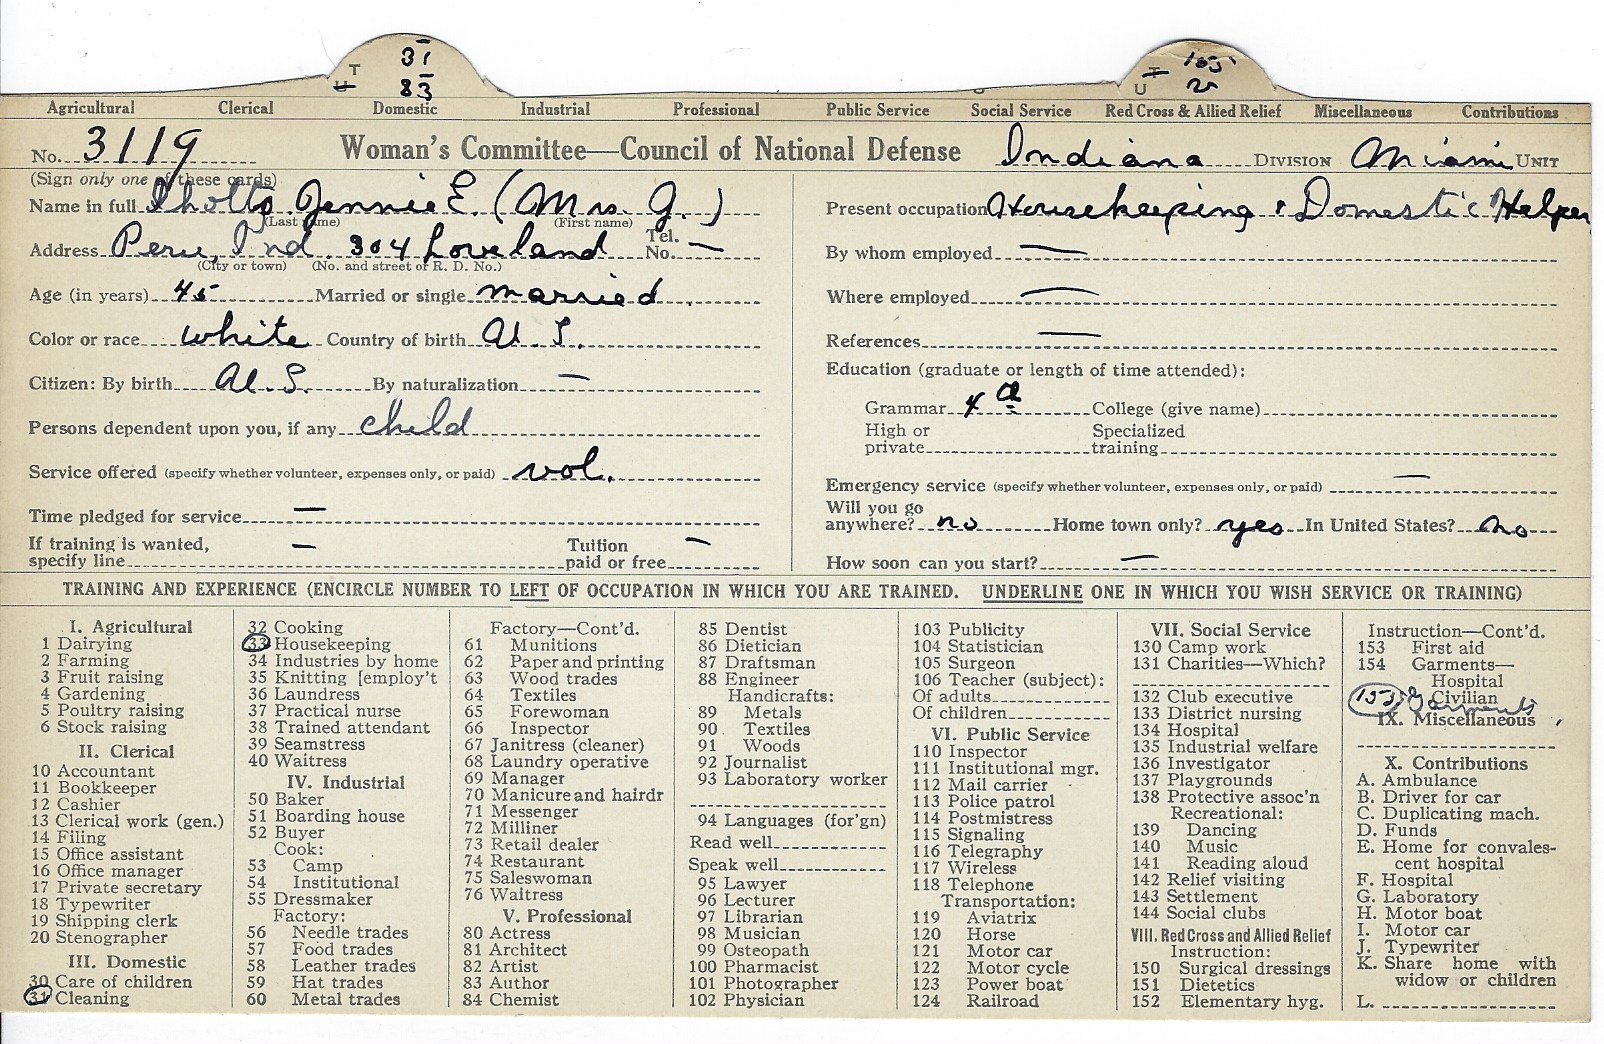 31 105
T T
U 83 U 2
Agricultural Clerical Domestic Industrial Professional Public Service Social Service Red Cross & Allied Relief Miscellaneous Contributions
No. 3119 Woman's Committee—Council of National Defense Indiana DIVISION Miami UNIT
(Sign only one of these cards)
Name in full Jennie E. (Mrs. J.)
(Last name) (First name)
Address Peru, Ind. 304 Loveland Tel. No. —
(City or town) (No. and street or R. D. No.)
Age (in years) 45 Married or single married.
Color or race white Country of birth U. S.
Citizen: By birth U. S. By naturalization —
Persons dependent upon you, if any child
Service offered (specify whether volunteer, expenses only, or paid) vol.
Time pledged for service —
If training is wanted, specify line — Tuition paid or free —
Present occupation Housekeeping & Domestic Helper
By whom employed —
Where employed —
References —
Education (graduate or length of time attended):
Grammar 4 College (give name)
High or private Specialized training
Emergency service (specify whether volunteer, expenses only, or paid) —
Will you go
anywhere? no Home town only? yes In United States? No
How soon can you start? —
TRAINING AND EXPERIENCE (ENCIRCLE NUMBER TO LEFT OF OCCUPATION IN WHICH YOU ARE TRAINED. UNDERLINE ONE IN WHICH YOU WISH SERVICE OR TRAINING)
I. Agricultural
1 Dairying
2 Farming
3 Fruit raising
4 Gardening
5 Poultry raising
6 Stock raising
II. Clerical
10 Accountant
11 Bookkeeper
12 Cashier
13 Clerical work (gen.)
14 Filing
15 Office assistant
16 Office manager
17 Private secretary
18 Typewriter
19 Shipping clerk
20 Stenographer
III. Domestic
30 Care of children
31 Cleaning
32 Cooking
33 Housekeeping
34 Industries by home
35 Knitting [employ't
36 Laundress
37 Practical nurse
38 Trained attendant
39 Seamstress
40 Waitress
IV. Industrial
50 Baker
51 Boarding house
52 Buyer
Cook:
53 Camp
54 Institutional
55 Dressmaker
Factory:
56 Needle trades
57 Food trades
58 Leather trades
59 Hat trades
60 Metal trades
Factory—Cont'd.
61 Munitions
62 Paper and printing
63 Wood trades
64 Textiles
65 Forewoman
66 Inspector
67 Janitress (cleaner)
68 Laundry operative
69 Manager
70 Manicure and hairdr
71 Messenger
72 Milliner
73 Retail dealer
74 Restaurant
75 Saleswoman
76 Waitress
V. Professional
80 Actress
81 Architect
82 Artist
83 Author
84 Chemist
85 Dentist
86 Dietician
87 Draftsman
88 Engineer
Handicrafts:
89 Metals
90 Textiles
91 Woods
92 Journalist
93 Laboratory worker
94 Languages (for'gn)
Read well
Speak well
95 Lawyer
96 Lecturer
97 Librarian
98 Musician
99 Osteopath
100 Pharmacist
101 Photographer
102 Physician
103 Publicity
104 Statistician
105 Surgeon
106 Teacher (subject):
Of adults
Of children
VI. Public Service
110 Inspector
111 Institutional mgr.
112 Mail carrier
113 Police patrol
114 Postmistress
115 Signaling
116 Telegraphy
117 Wireless
118 Telephone
Transportation:
119 Aviatrix
120 Horse
121 Motor car
122 Motor cycle
123 Power boat
124 Railroad
VII. Social Service
130 Camp work
131 Charities—Which?
132 Club executive
133 District nursing
134 Hospital
135 Industrial welfare
136 Investigator
137 Playgrounds
138 Protective assoc'n
Recreational:
139 Dancing
140 Music
141 Reading aloud
142 Relief visiting
143 Settlement
144 Social clubs
VIII. Red Cross and Allied Relief
Instruction:
150 Surgical dressings
151 Dietetics
152 Elementary hyg.
Instruction—Cont'd.
153 First aid
154 Garments—
Hospital
Civilian
155 Garments
IX. Miscellaneous
X. Contributions
A. Ambulance
B. Driver for car
C. Duplicating mach.
D. Funds
E. Home for convales-
cent hospital
F. Hospital
G. Laboratory
H. Motor boat
I. Motor car
J. Typewriter
K. Share home with
widow or children
L.